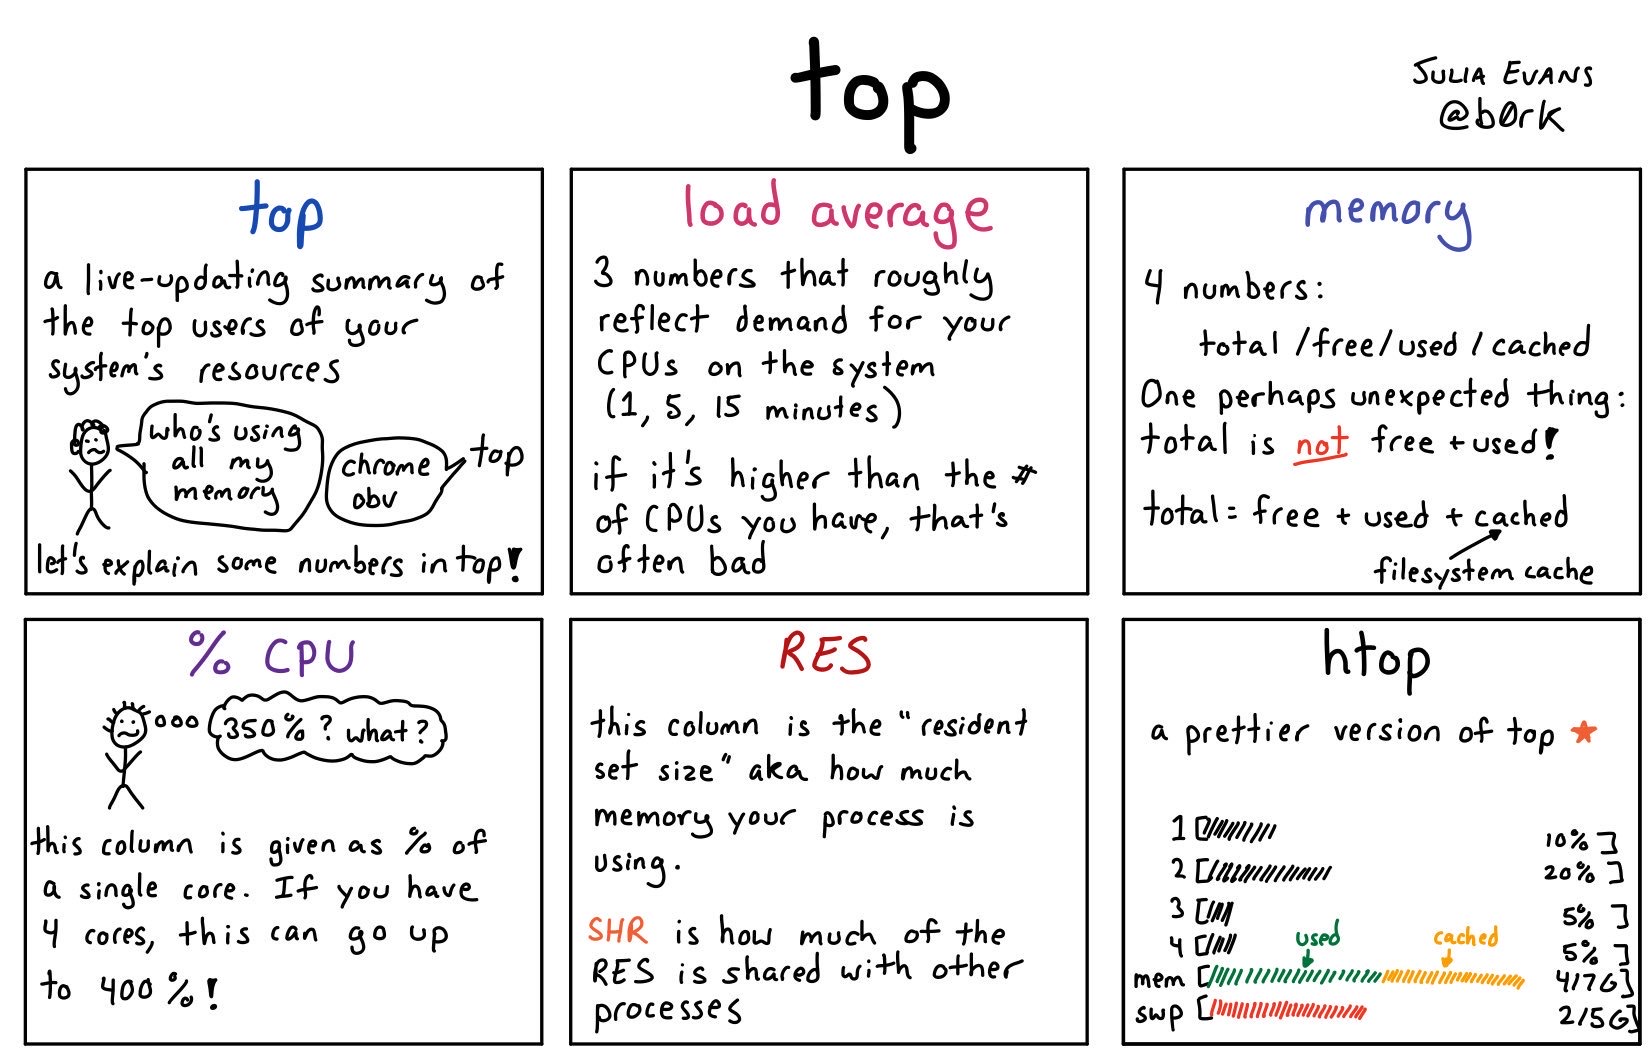 top
JULIA EVANS
@b0rk
top
a live-updating summary of
the top users of your
system's resources
who's using
all my
memory
chrome
obv
top
let's explain some numbers in top!
load average
3 numbers that roughly
reflect demand for your
CPUs on the system
(1, 5, 15 minutes)
if it's higher than the #
of CPUs you have, that's
often bad
memory
4 numbers:
total / free / used / cached
One perhaps unexpected thing:
total is not free + used!
total = free + used + cached
filesystem cache
% CPU
350%? what?
this column is given as % of
a single core. If you have
4 cores, this can go up
to 400%!
RES
this column is the "resident
set size" aka how much
memory your process is
using.
SHR is how much of the
RES is shared with other
processes
htop
a prettier version of top
1 [ 10% ]
2 [ 20% ]
3 [ 5% ]
4 [ 5% ]
used cached
mem [ 4/7G ]
swp [ 2/5G ]